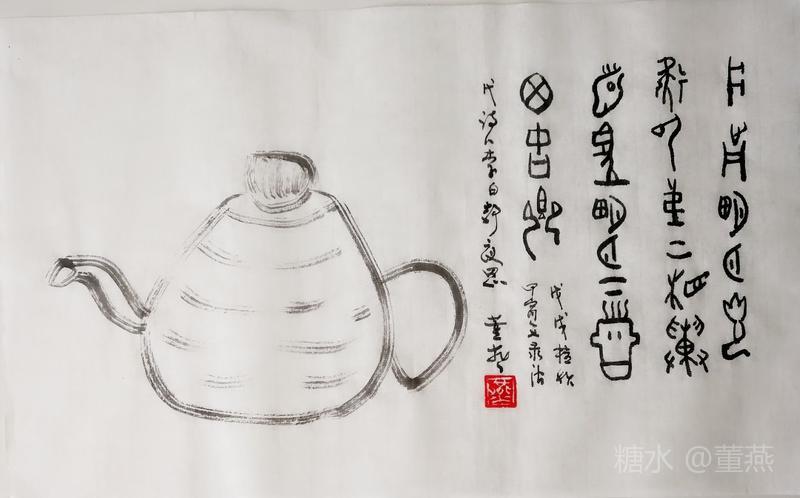 床前明月光
疑是地上霜举
头望明月低头
思故乡
戊戌桂秋
甲骨文录唐
代诗人李白静夜思 董燕
糖水 @董燕